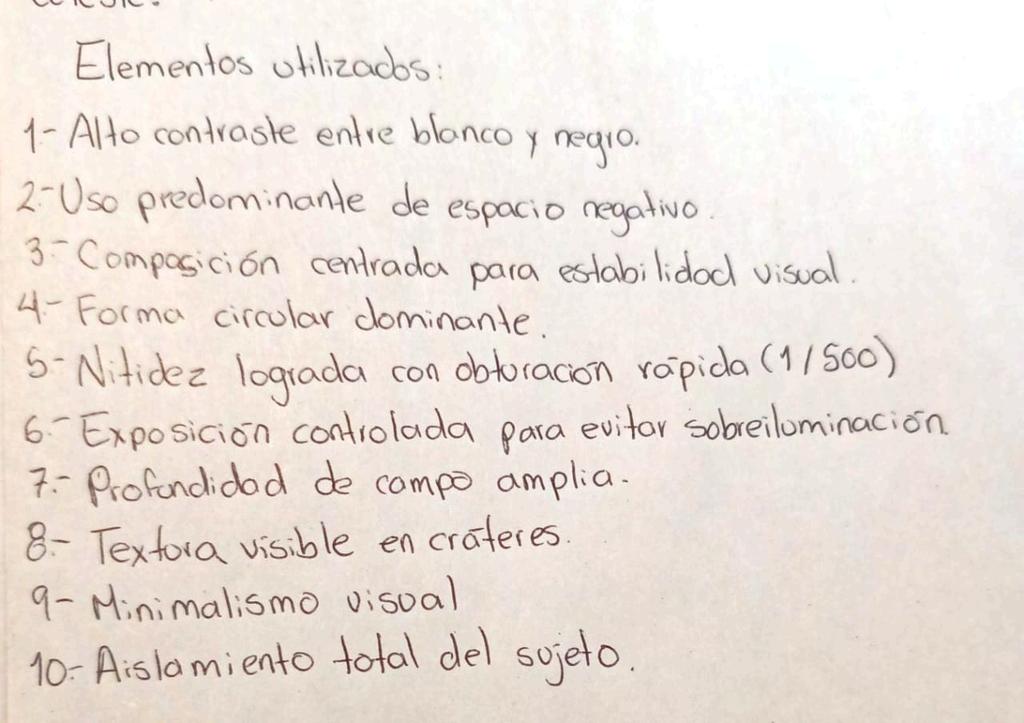 Elementos utilizados:
1- Alto contraste entre blanco y negro.
2- Uso predominante de espacio negativo.
3- Composición centrada para estabilidad visual.
4- Forma circular dominante.
5- Nitidez lograda con obturación rápida (1/500)
6.- Exposición controlada para evitar sobreiluminación.
7.- Profundidad de campo amplia.
8.- Textura visible en cráteres.
9- Minimalismo visual
10.- Aislamiento total del sujeto.